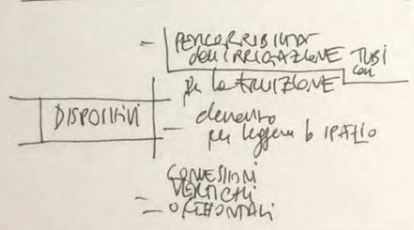 - PERCORRIBILITA'
dell'IRRIGAZIONE TUBI
con
per la FRUIZIONE
DISPOSITIVI
- elemento
per leggere lo SPAZIO
CONNESSIONI
VERTICALI
- ORIZZONTALI